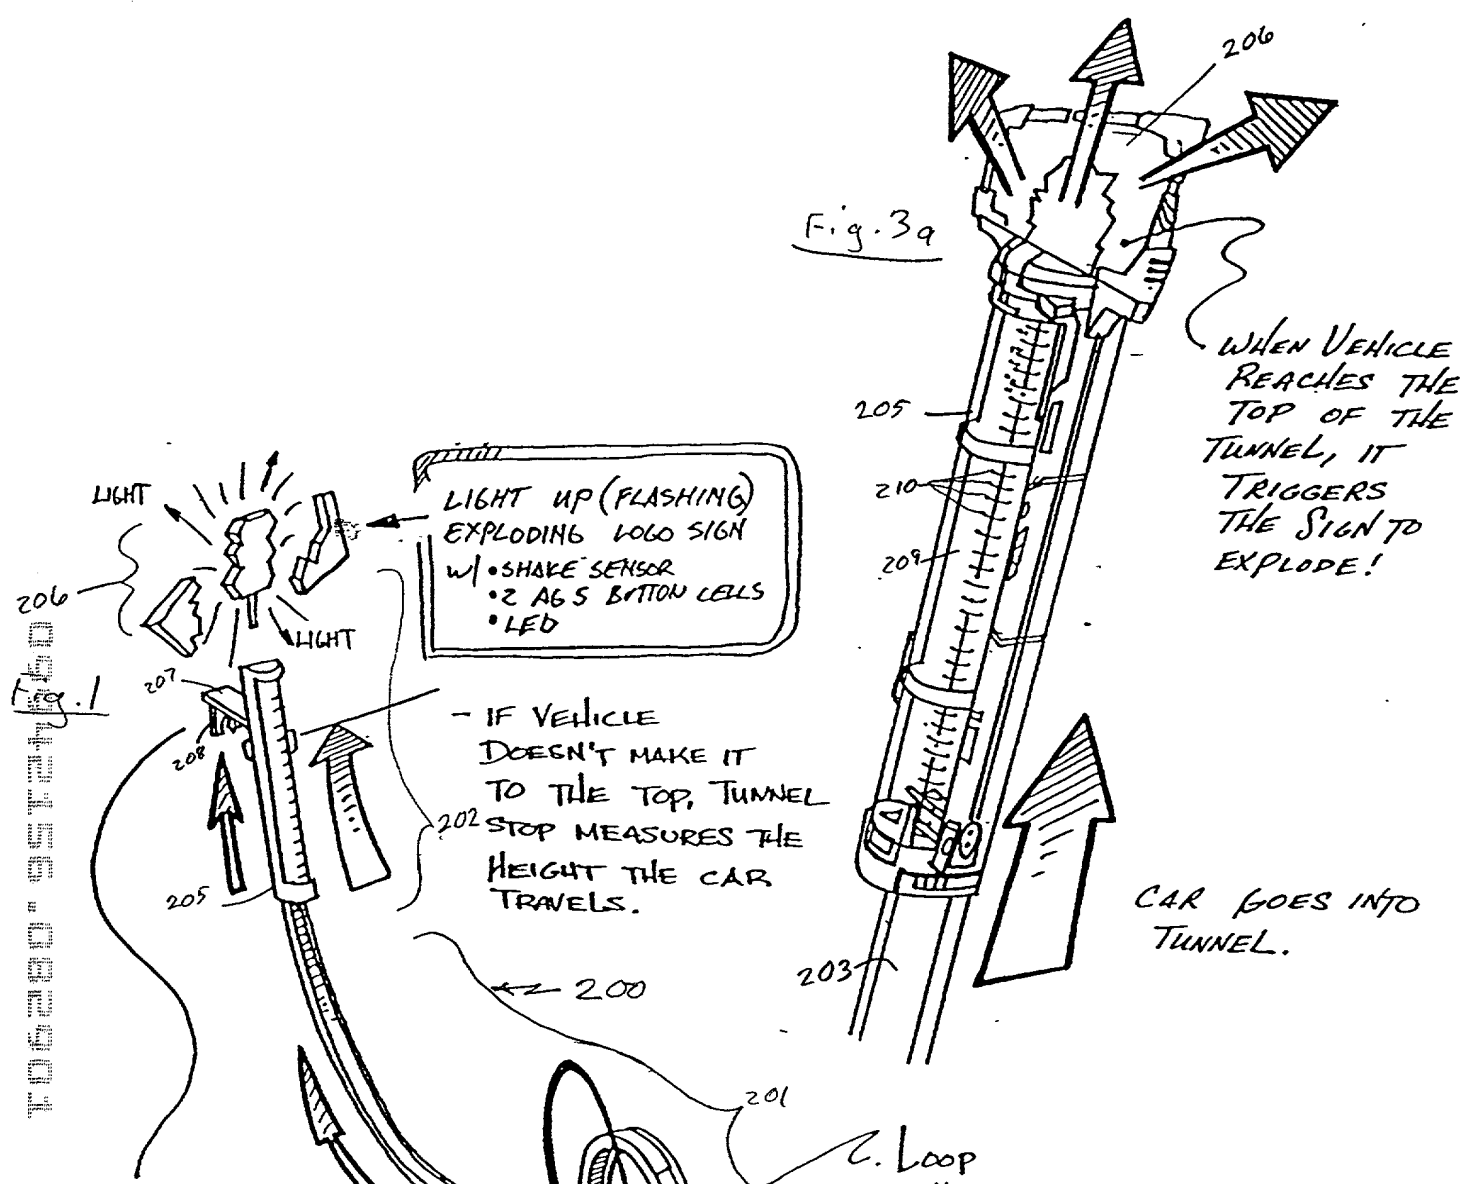 206
Fig. 3a
WHEN VEHICLE
REACHES THE
TOP OF THE
TUNNEL, IT
TRIGGERS
THE SIGN TO
EXPLODE!
205
210
209
LIGHT
LIGHT UP (FLASHING)
EXPLODING LOGO SIGN
W/ • SHAKE SENSOR
• 2 AG 5 BUTTON CELLS
• LED
206
LIGHT
207
Fig. 1
208
- IF VEHICLE
DOESN'T MAKE IT
TO THE TOP, TUNNEL
STOP MEASURES THE
HEIGHT THE CAR
TRAVELS.
202
205
CAR GOES INTO
TUNNEL.
203
200
201
2. LOOP